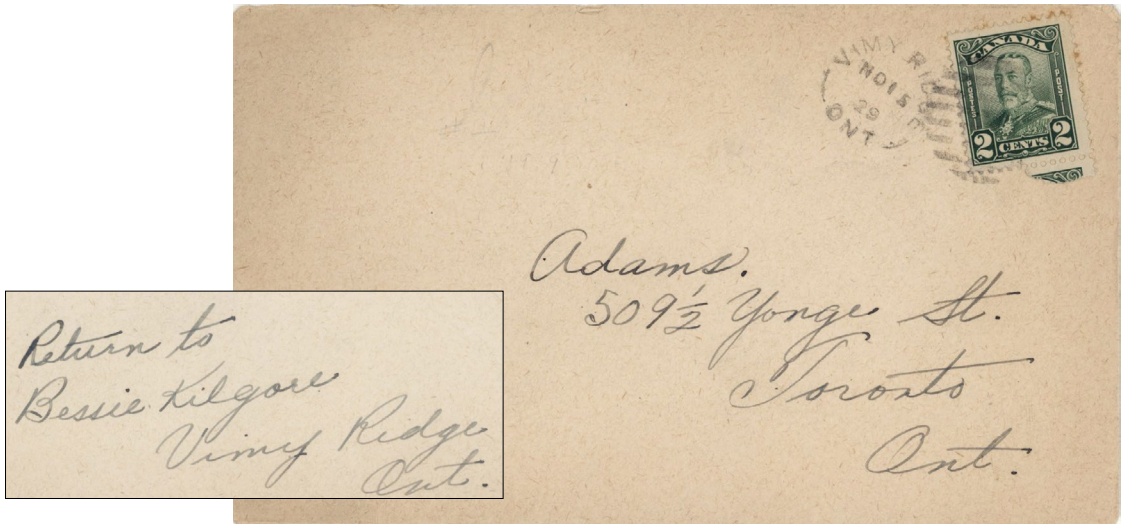 VIMY RIDGE
NO 15
29
ONT
CANADA
POSTES
POSTAGE
2 CENTS 2
Adams.
509½ Yonge St.
Toronto
Ont.
Return to
Bessie Kilgore
Vimy Ridge
Ont.